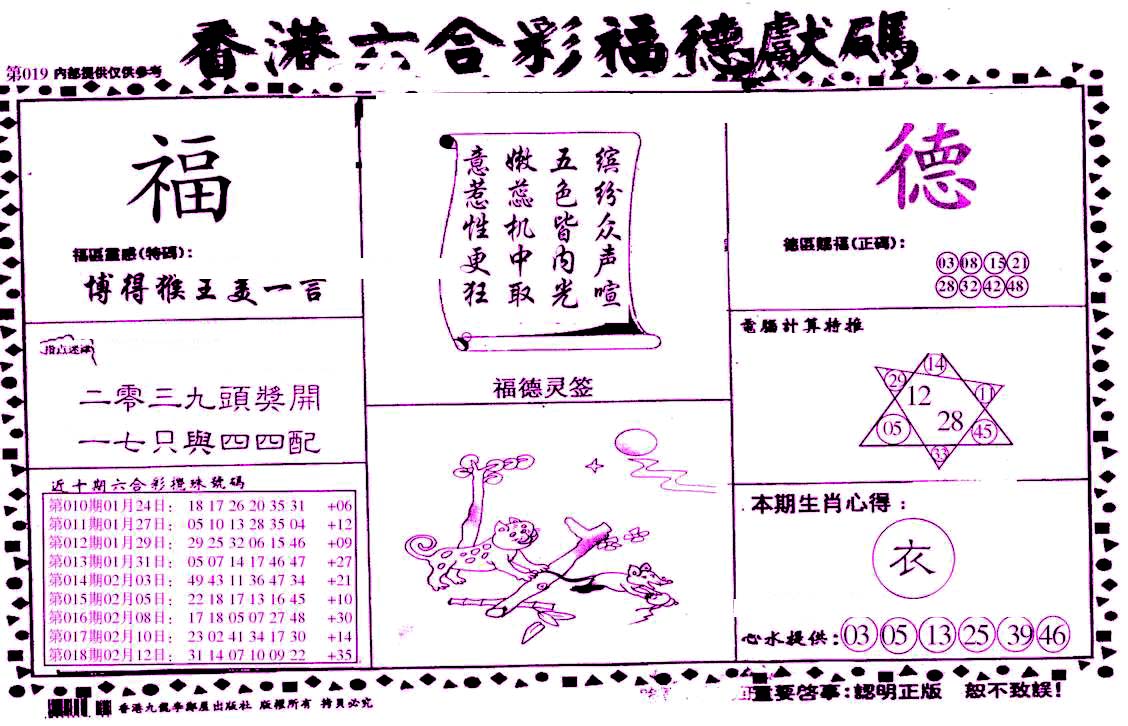 香港六合彩福德獻碼
第019 内部提供仅供参考
福
福區靈感(特碼):
博得猴王美一言
指点迷津
二零三九頭獎開
一七只與四四配
近十期六合彩攪珠號碼
第010期01月24日: 18 17 26 20 35 31 +06
第011期01月27日: 05 10 13 28 35 04 +12
第012期01月29日: 29 25 32 06 15 46 +09
第013期01月31日: 05 07 14 17 46 47 +27
第014期02月03日: 49 43 11 36 47 34 +21
第015期02月05日: 22 18 17 13 16 45 +10
第016期02月08日: 17 18 05 07 27 48 +30
第017期02月10日: 23 02 41 34 17 30 +14
第018期02月12日: 31 14 07 10 09 22 +35
缤纷众声喧
五色皆内光
嫩蕊机中取
意惹性更狂
福德灵签
德
德區賜福(正碼):
03 08 15 21
28 32 42 48
電腦計算特推
14
29 11
12
28
05 45
33
本期生肖心得:
衣
心水提供: 03 05 13 25 39 46
重要啓事:認明正版 恕不致誤!
香港九龍李鄭屋出版社 版權所有 拷貝必究